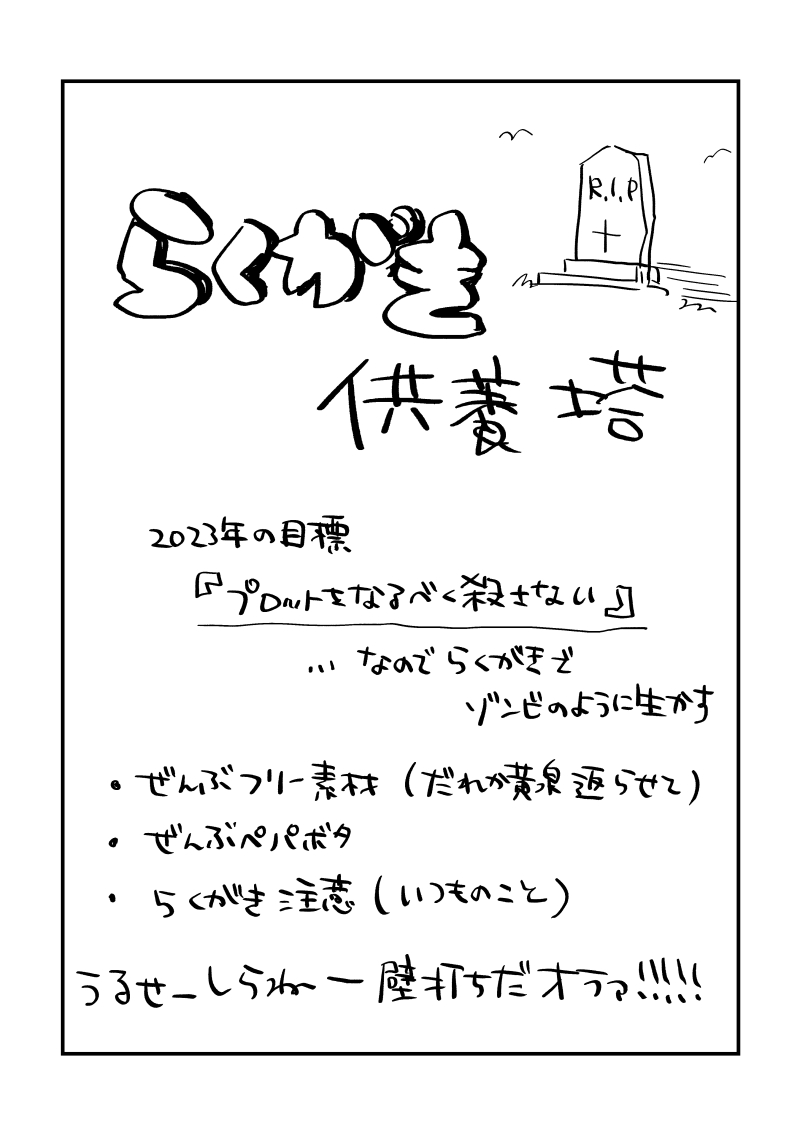 R.I.P
らくがき
供養塔
2023年の目標
『プロットをなるべく殺さない』
... なのでらくがきで
ゾンビのように生かす
・ぜんぶフリー素材（だれか黄泉返らせて）
・ぜんぶペパボタ
・らくがき注意（いつものこと）
うるせーしらねー壁打ちだオラァ!!!!!